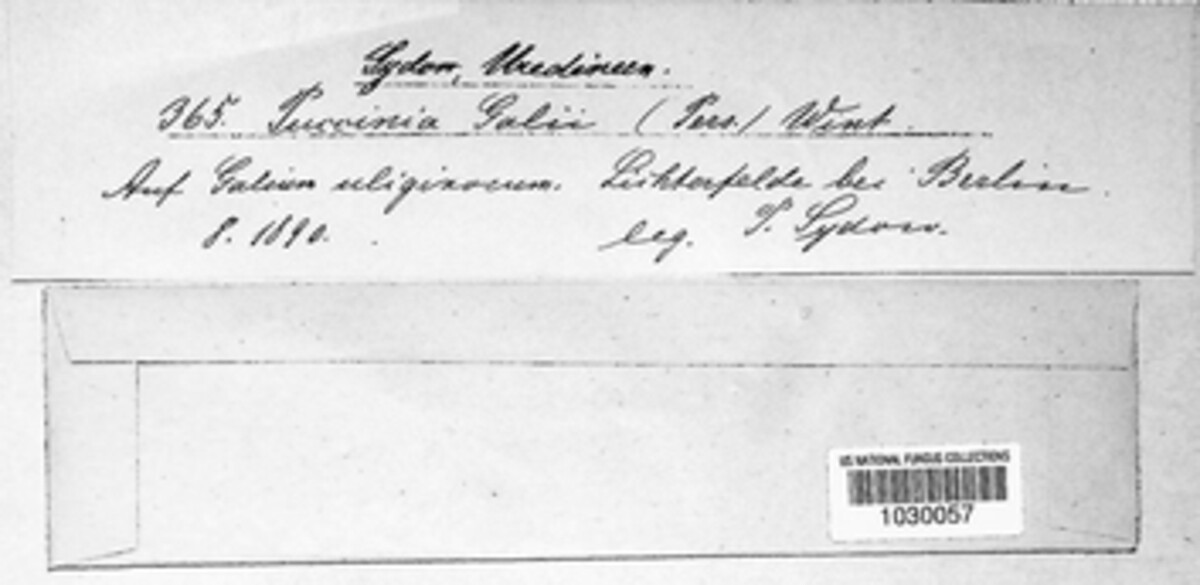 Sydow, Uredineen.
365. Puccinia Galii (Pers.) Wint.
Auf Galium uliginosum. Lichterfelde bei Berlin.
8. 1890. leg. P. Sydow.
US NATIONAL FUNGUS COLLECTIONS
1030057